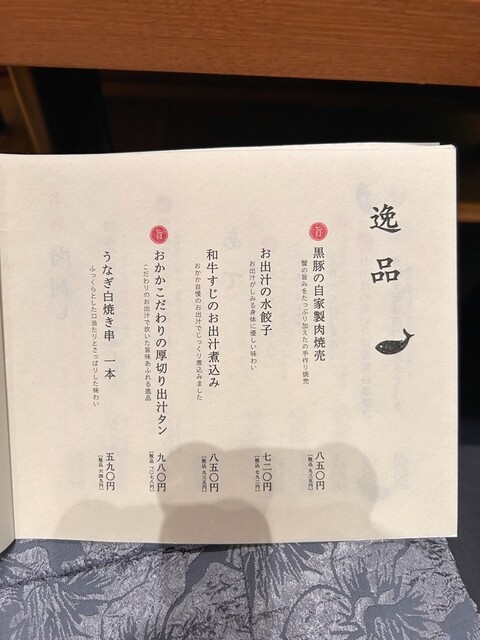 逸品
旨
黒豚の自家製肉焼売
蟹の旨みをたっぷり加えたの手作り焼売
八五〇円
(税込 九三五円)
お出汁の水餃子
お出汁がしみる身体に優しい味わい
七二〇円
(税込 七九二円)
和牛すじのお出汁煮込み
おかか自慢のお出汁でじっくり煮込みました
八五〇円
(税込 九三五円)
旨
おかかこだわりの厚切り出汁タン
こだわりのお出汁で炊いた旨味あふれる逸品
九八〇円
(税込 一〇七八円)
うなぎ白焼き串 一本
ふっくらとした口当たりとさっぱりした味わい
五九〇円
(税込 六四九円)